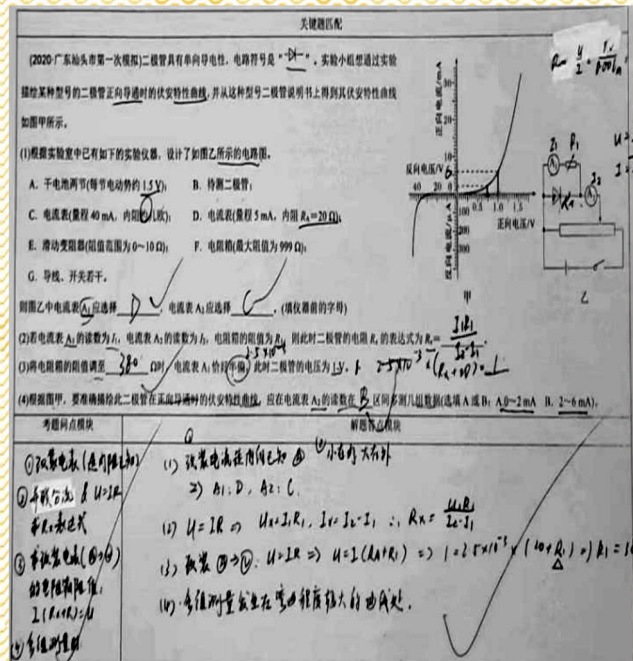 关键题匹配
(2020·广东汕头市第一次模拟)二极管具有单向导电性,电路符号是“ ”,实验小组想通过实验
描绘某种型号的二极管正向导通时的伏安特性曲线,并从这种型号二极管说明书上得到其伏安特性曲线
如图甲所示。
(1)根据实验室中已有如下的实验仪器,设计了如图乙所示的电路图。
A. 干电池两节(每节电动势约1.5 V);  B. 待测二极管;
C. 电流表(量程40 mA,内阻  1欧);  D. 电流表(量程5 mA,内阻RA=20 Ω);
E. 滑动变阻器(阻值范围为0~10 Ω);  F. 电阻箱(最大阻值为999 Ω);
G. 导线、开关若干。
则图乙中电流表A1应选择 D ,电流表A2应选择 C 。(填仪器前的字母)
(2)若电流表A1的读数为I1,电流表A2的读数为I2,电阻箱的阻值为R1,则此时二极管的电阻Rx的表达式为Rx= I1R1 / I2-I1
(3)将电阻箱的阻值调至 380 Ω时,电流表A1恰好半偏,此时二极管的电压为1 V。
(4)根据图甲,要准确描绘此二极管在正向导通时的伏安特性曲线,应在电流表A2的读数在 B 区间多测几组数据(选填A或B:A.0~2 mA B. 2~6 mA)。
正向电流/mA
30
20
10
反向电流/V
40 20 0
0.5 1.0 1.5
正向电压/V
100
200
300
反向电流/μA
甲
乙
考题问点模块
解题答点模块
①改装电表(选内阻已知)
②并联分流 & U=IR
求Rx表达式
的电阻箱阻值:
I(RA+R1)=U
④多组测量
(1) 改装电流表内阻已知
2) A1:D, A2:C.
(2) U=IR ⇒ Ux=I1R1, Ix=I2-I1 ∴ Rx= U1R1 / I2-I1
(3) 改装 Ⓐ→Ⓥ: U=IR ⇒ U=I(RA+R1) ⇒ 1=2.5×10⁻³×(20+R1)
(4) 多组测量发生在弯曲程度较大的曲线处.